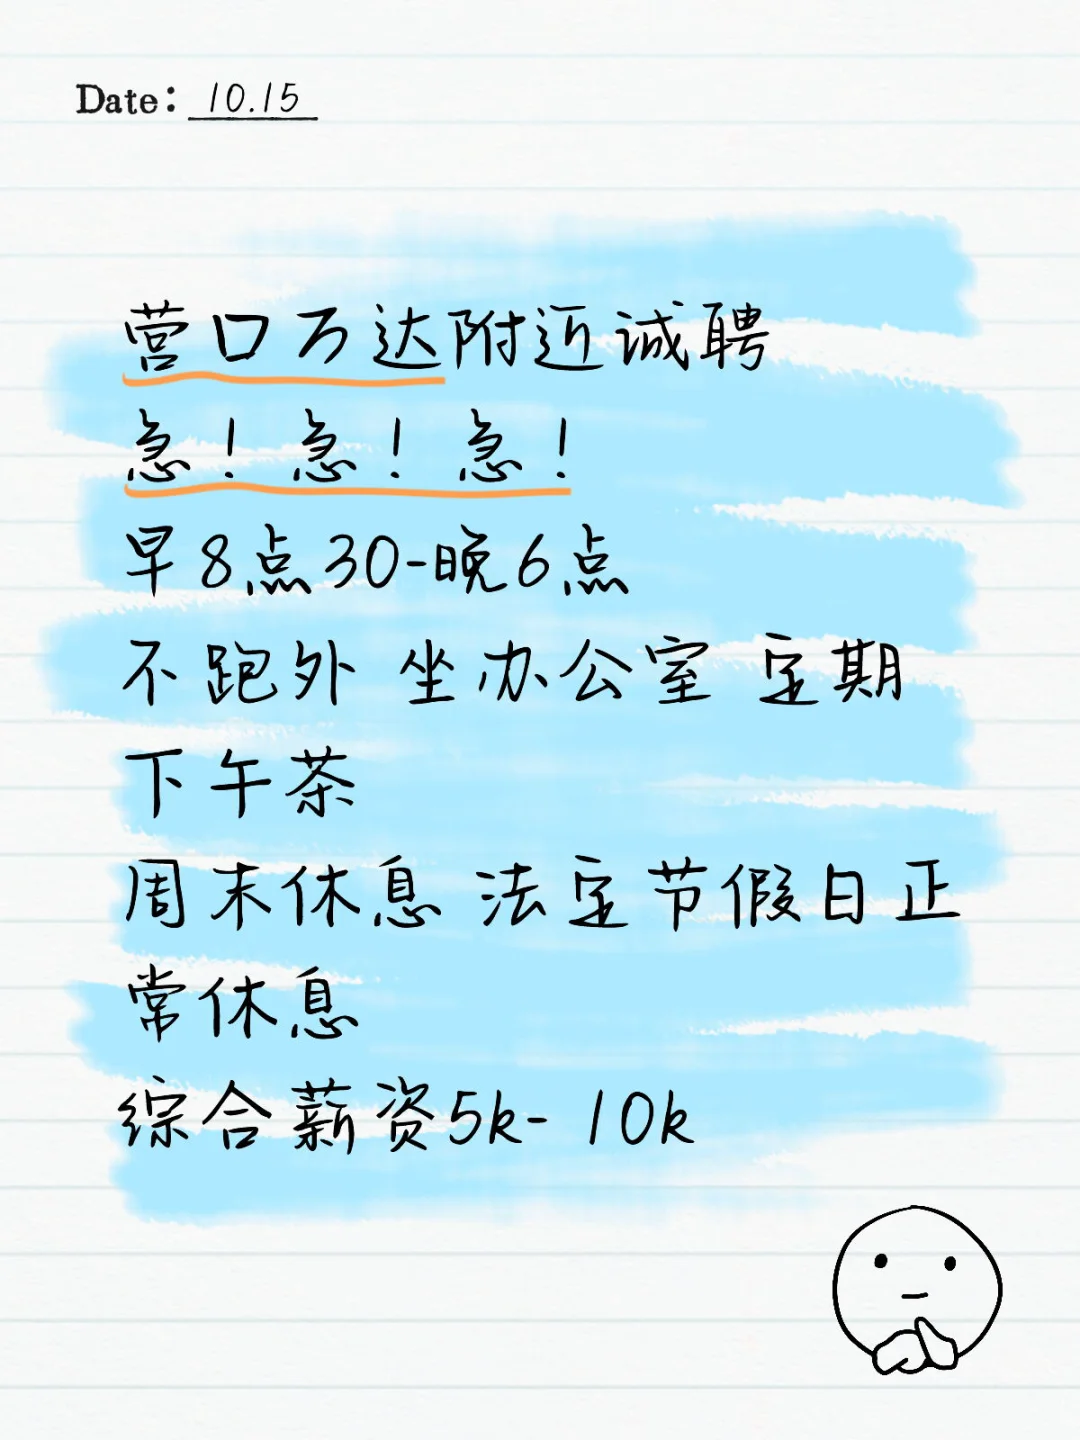 Date: 10.15
营口万达附近诚聘
急！急！急！
早8点30-晚6点
不跑外 坐办公室 定期
下午茶
周末休息 法定节假日正
常休息
综合薪资5k- 10k